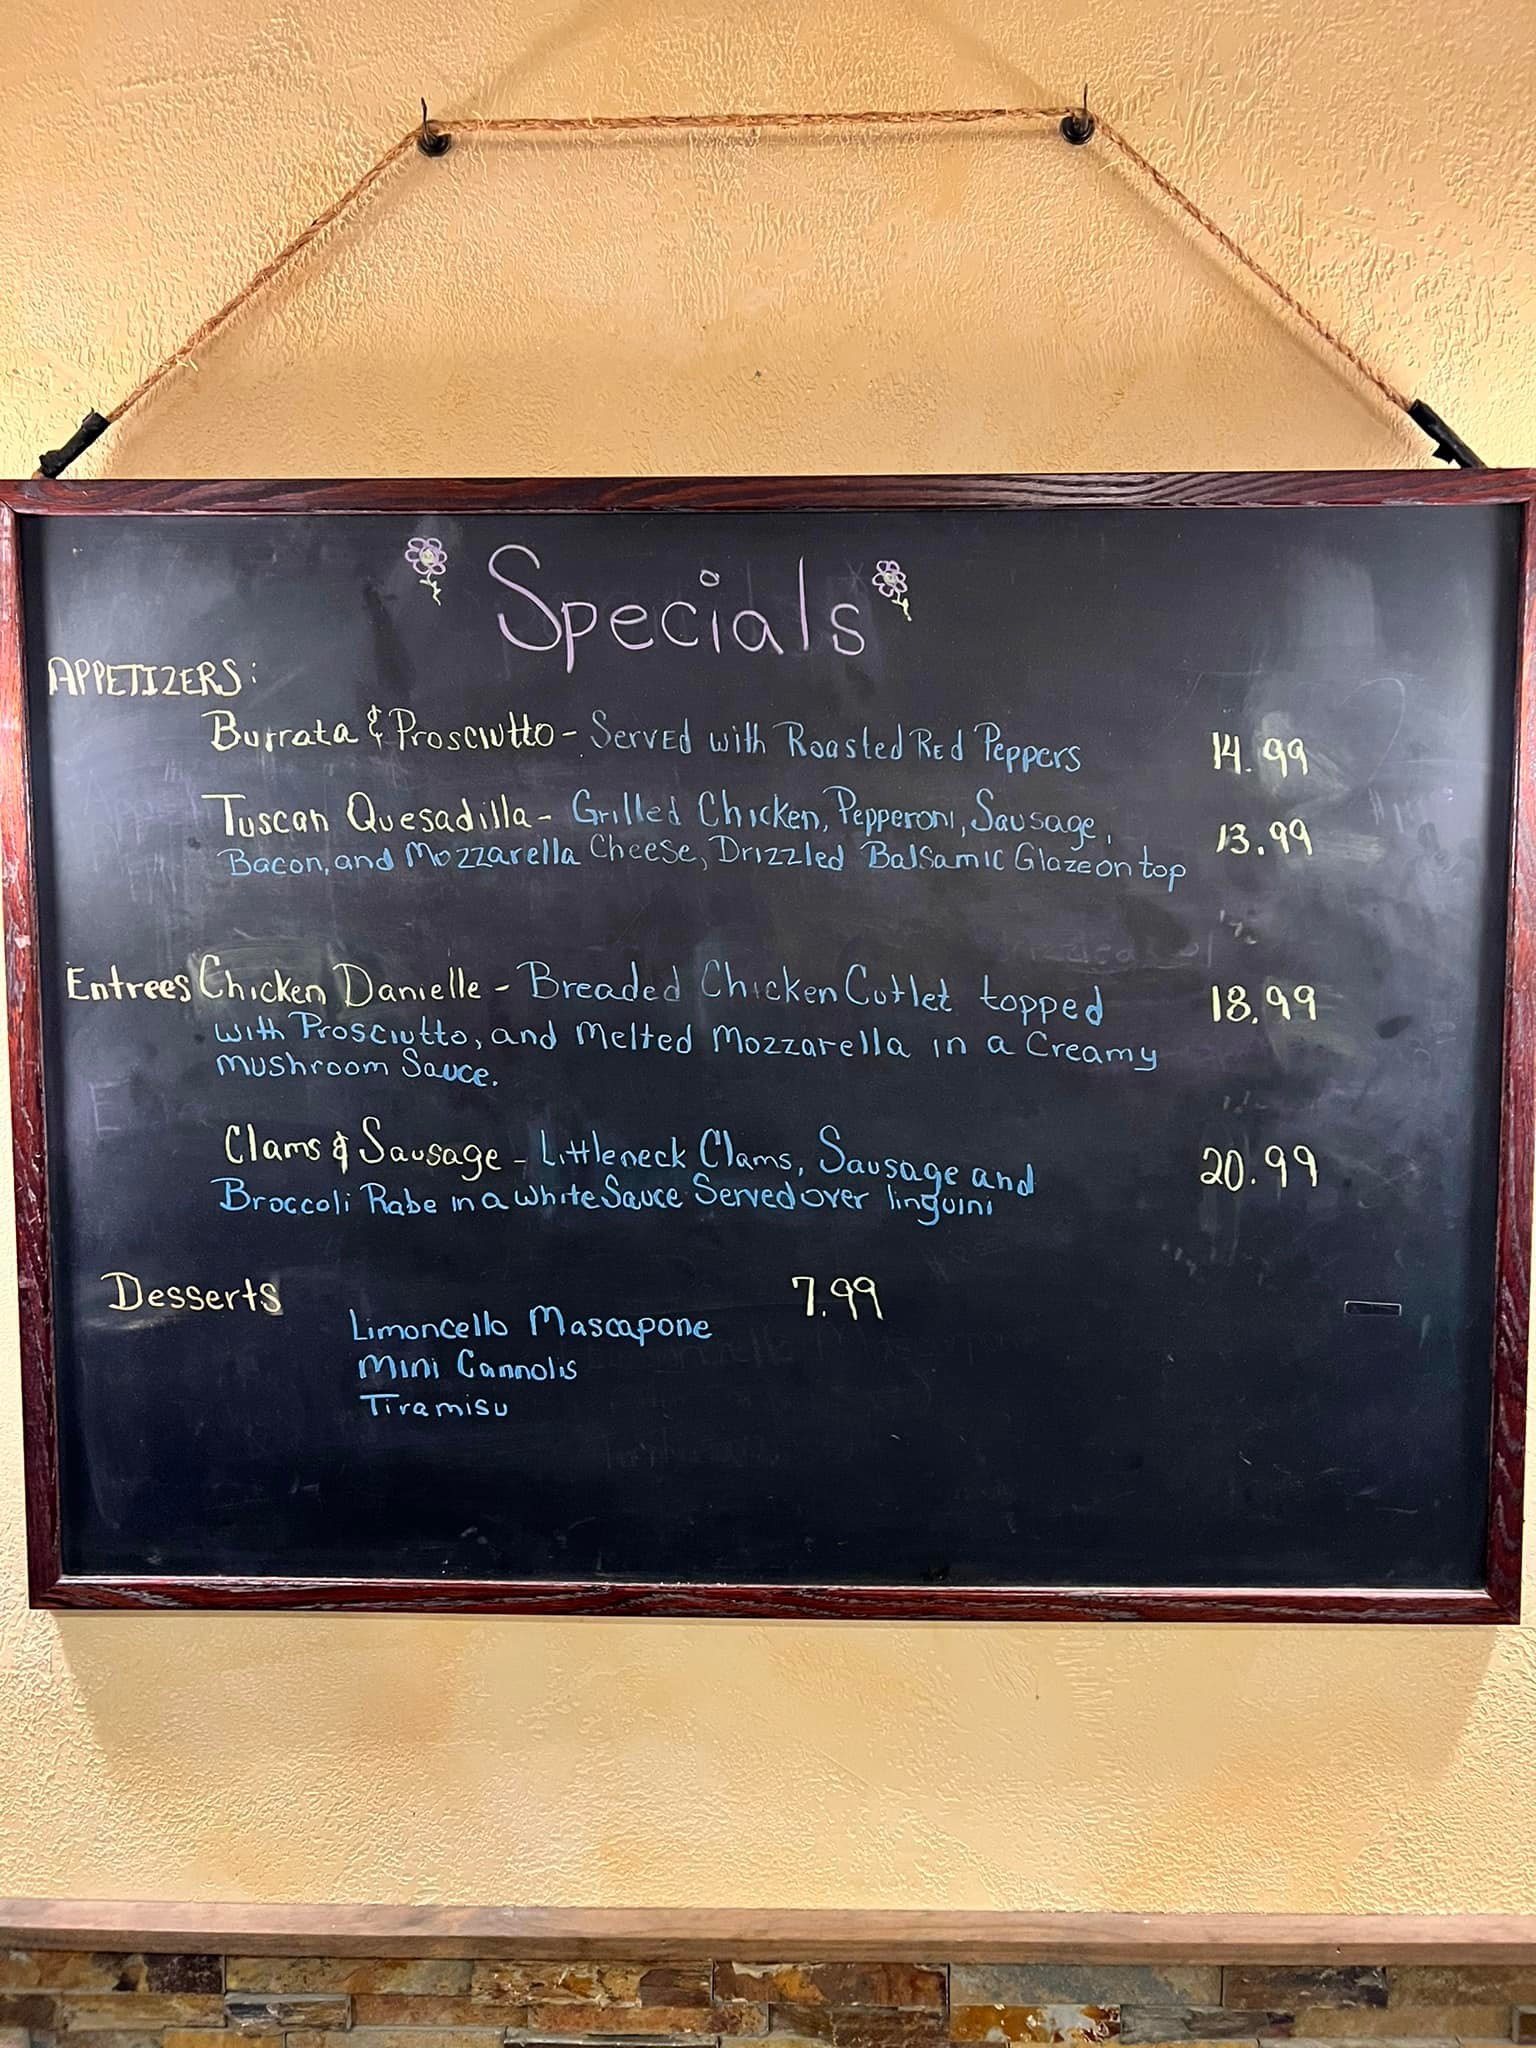 Specials
APPETIZERS:
Burrata & Prosciutto - Served with Roasted Red Peppers 14.99
Tuscan Quesadilla - Grilled Chicken, Pepperoni, Sausage, 13.99
Bacon, and Mozzarella Cheese, Drizzled Balsamic Glaze on top
Entrees Chicken Danielle - Breaded Chicken Cutlet topped 18.99
with Prosciutto, and Melted Mozzarella in a Creamy
Mushroom Sauce.
Clams & Sausage - Littleneck Clams, Sausage and 20.99
Broccoli Rabe in a white Sauce Served over linguini
Desserts 7.99
Limoncello Mascapone
Mini Cannolis
Tiramisu